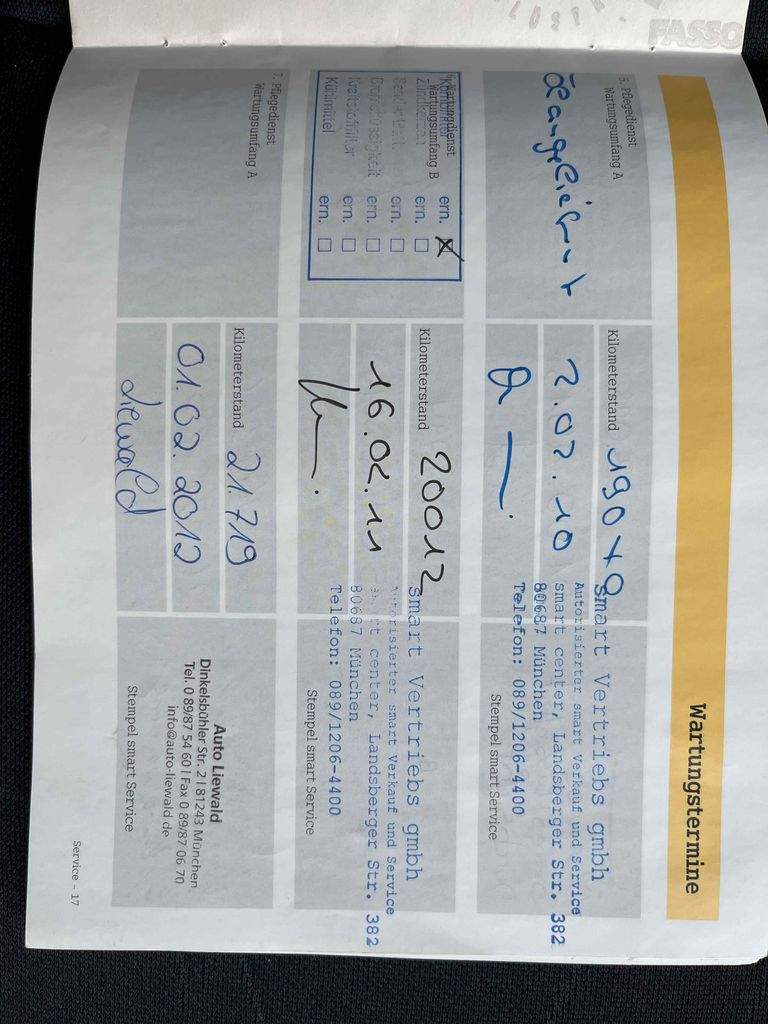 FASSO
Wartungstermine
5. Pflegedienst
Wartungsumfang A
Kilometerstand
2.02.10
smart Vertriebs gmbh
Autorisierter smart Verkauf und Service
smart center, Landsberger Str. 382
80687 München
Telefon: 089/1206-4400
Stempel smart Service
Wartungsdienst
Wartungsumfang B
ern. ☒
Zündkerzen ern. ☐
ern. ☐
Bremsflüssigkeit ern. ☐
Kraftstofffilter ern. ☐
Kühlmittel ern. ☐
Kilometerstand 20012
16.02.11
smart Vertriebs gmbh
Autorisierter smart Verkauf und Service
smart center, Landsberger Str. 382
80687 München
Telefon: 089/1206-4400
Stempel smart Service
7. Pflegedienst
Wartungsumfang A
Kilometerstand 21.719
01.02.2012
Liewald
Auto Liewald
Dinkelsbühler Str. 2 | 81243 München
Tel. 0 89/87 54 60 | Fax 0 89/87 06 70
info@auto-liewald de
Stempel smart Service
Service - 17